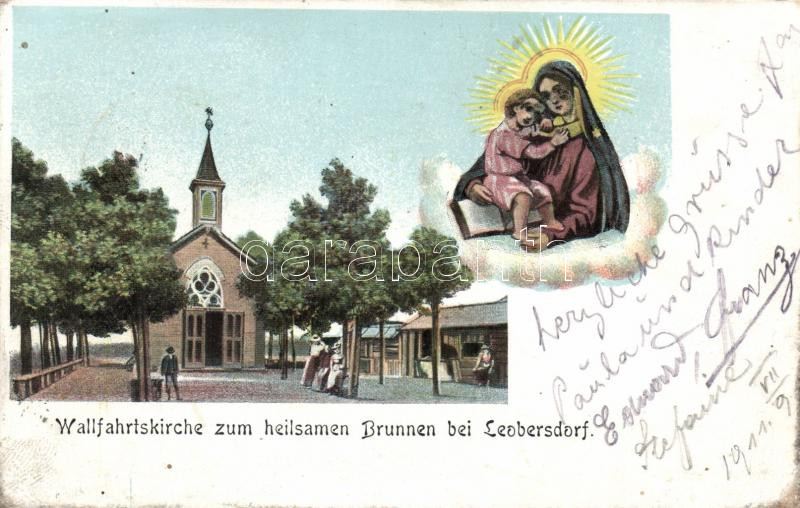 Wallfahrtskirche zum heilsamen Brunnen bei Leobersdorf.
herzliche Grüsse
Paula und Kinder
Eduard, Franz
Stefanie
1911. 9/VII
darabanth.com